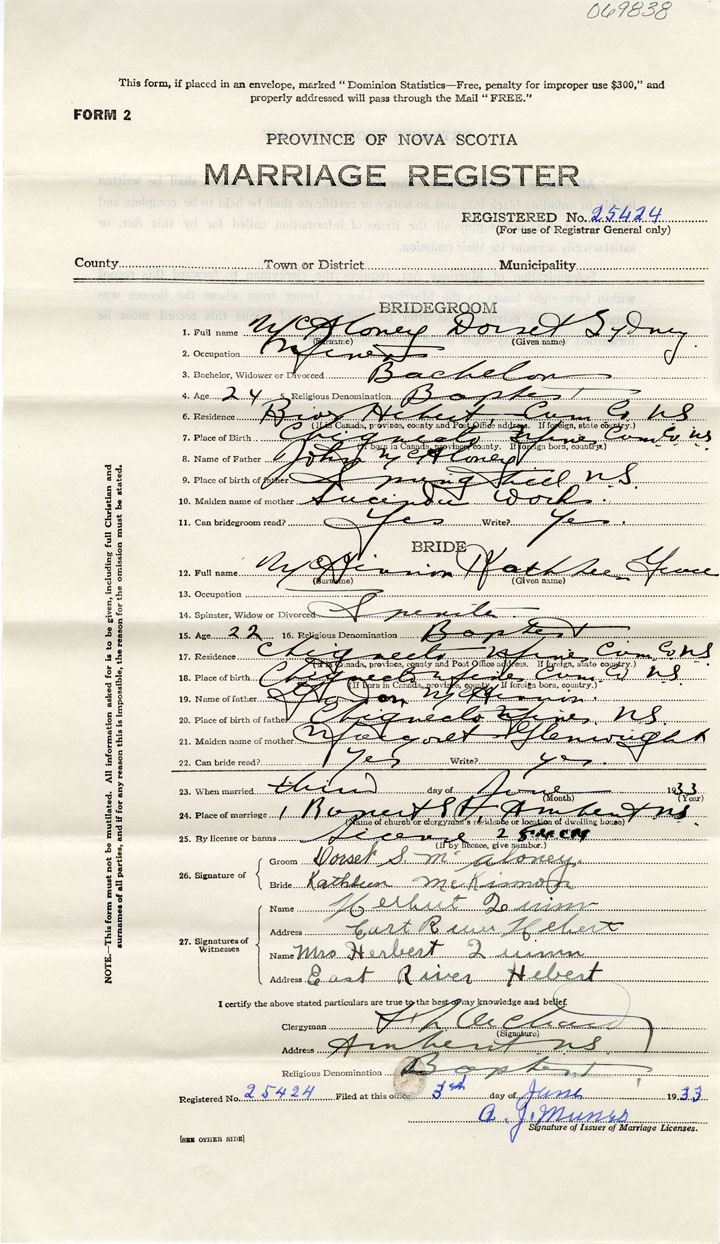 069838
This form, if placed in an envelope, marked "Dominion Statistics—Free, penalty for improper use $300," and
properly addressed will pass through the Mail "FREE."
FORM 2
PROVINCE OF NOVA SCOTIA
MARRIAGE REGISTER
REGISTERED No. 25424
(For use of Registrar General only)
County Town or District Municipality
BRIDEGROOM
1. Full name McAloney Dorset Sydney
(Surname) (Given name)
2. Occupation Miner
3. Bachelor, Widower or Divorced Bachelor
4. Age 24 5. Religious Denomination Baptist
6. Residence River Hebert, Cum Co NS
(If in Canada, province, county and Post Office address. If foreign, state country.)
7. Place of Birth Chignecto Mines Cum Co NS
(If born in Canada, province, county. If foreign born, country.)
8. Name of Father John McAloney
9. Place of birth of father Springhill N.S.
10. Maiden name of mother Lucinda
11. Can bridegroom read? Yes Write? Yes.
BRIDE
12. Full name McKinnon Kathleen Grace
(Surname) (Given name)
13. Occupation
14. Spinster, Widow or Divorced Spinster
15. Age 22 16. Religious Denomination Baptist
17. Residence Chignecto Mines Cum Co NS
(If in Canada, province, county and Post Office address. If foreign, state country.)
18. Place of birth Chignecto Mines Cum Co NS.
(If born in Canada, province, county. If foreign born, country.)
19. Name of father McKinnon.
20. Place of birth of father Chignecto Mines N.S.
21. Maiden name of mother Margaret Glenwright
22. Can bride read? Yes Write? yes.
23. When married third day of June 1933
(Month) (Year)
24. Place of marriage 1 Rupert St, Amherst NS.
(Name of church or clergyman's residence or location of dwelling house)
25. By license or banns License 25424
(If by licence, give number.)
26. Signature of Groom Dorset S. McAloney.
Bride Kathleen McKinnon
27. Signatures of Witnesses
Name Herbert Quinn
Address East River Hebert
Name Mrs Herbert Quinn
Address East River Hebert
I certify the above stated particulars are true to the best of my knowledge and belief.
Clergyman
(Signature)
Address Amherst NS.
Religious Denomination Baptist
Registered No. 25424 Filed at this office 3rd day of June 1933
A. J. Munro
Signature of Issuer of Marriage Licenses.
[SEE OTHER SIDE]
NOTE.—This form must not be mutilated. All information asked for is to be given, including full Christian and
surnames of all parties, and if for any reason this is impossible, the reason for the omission must be stated.